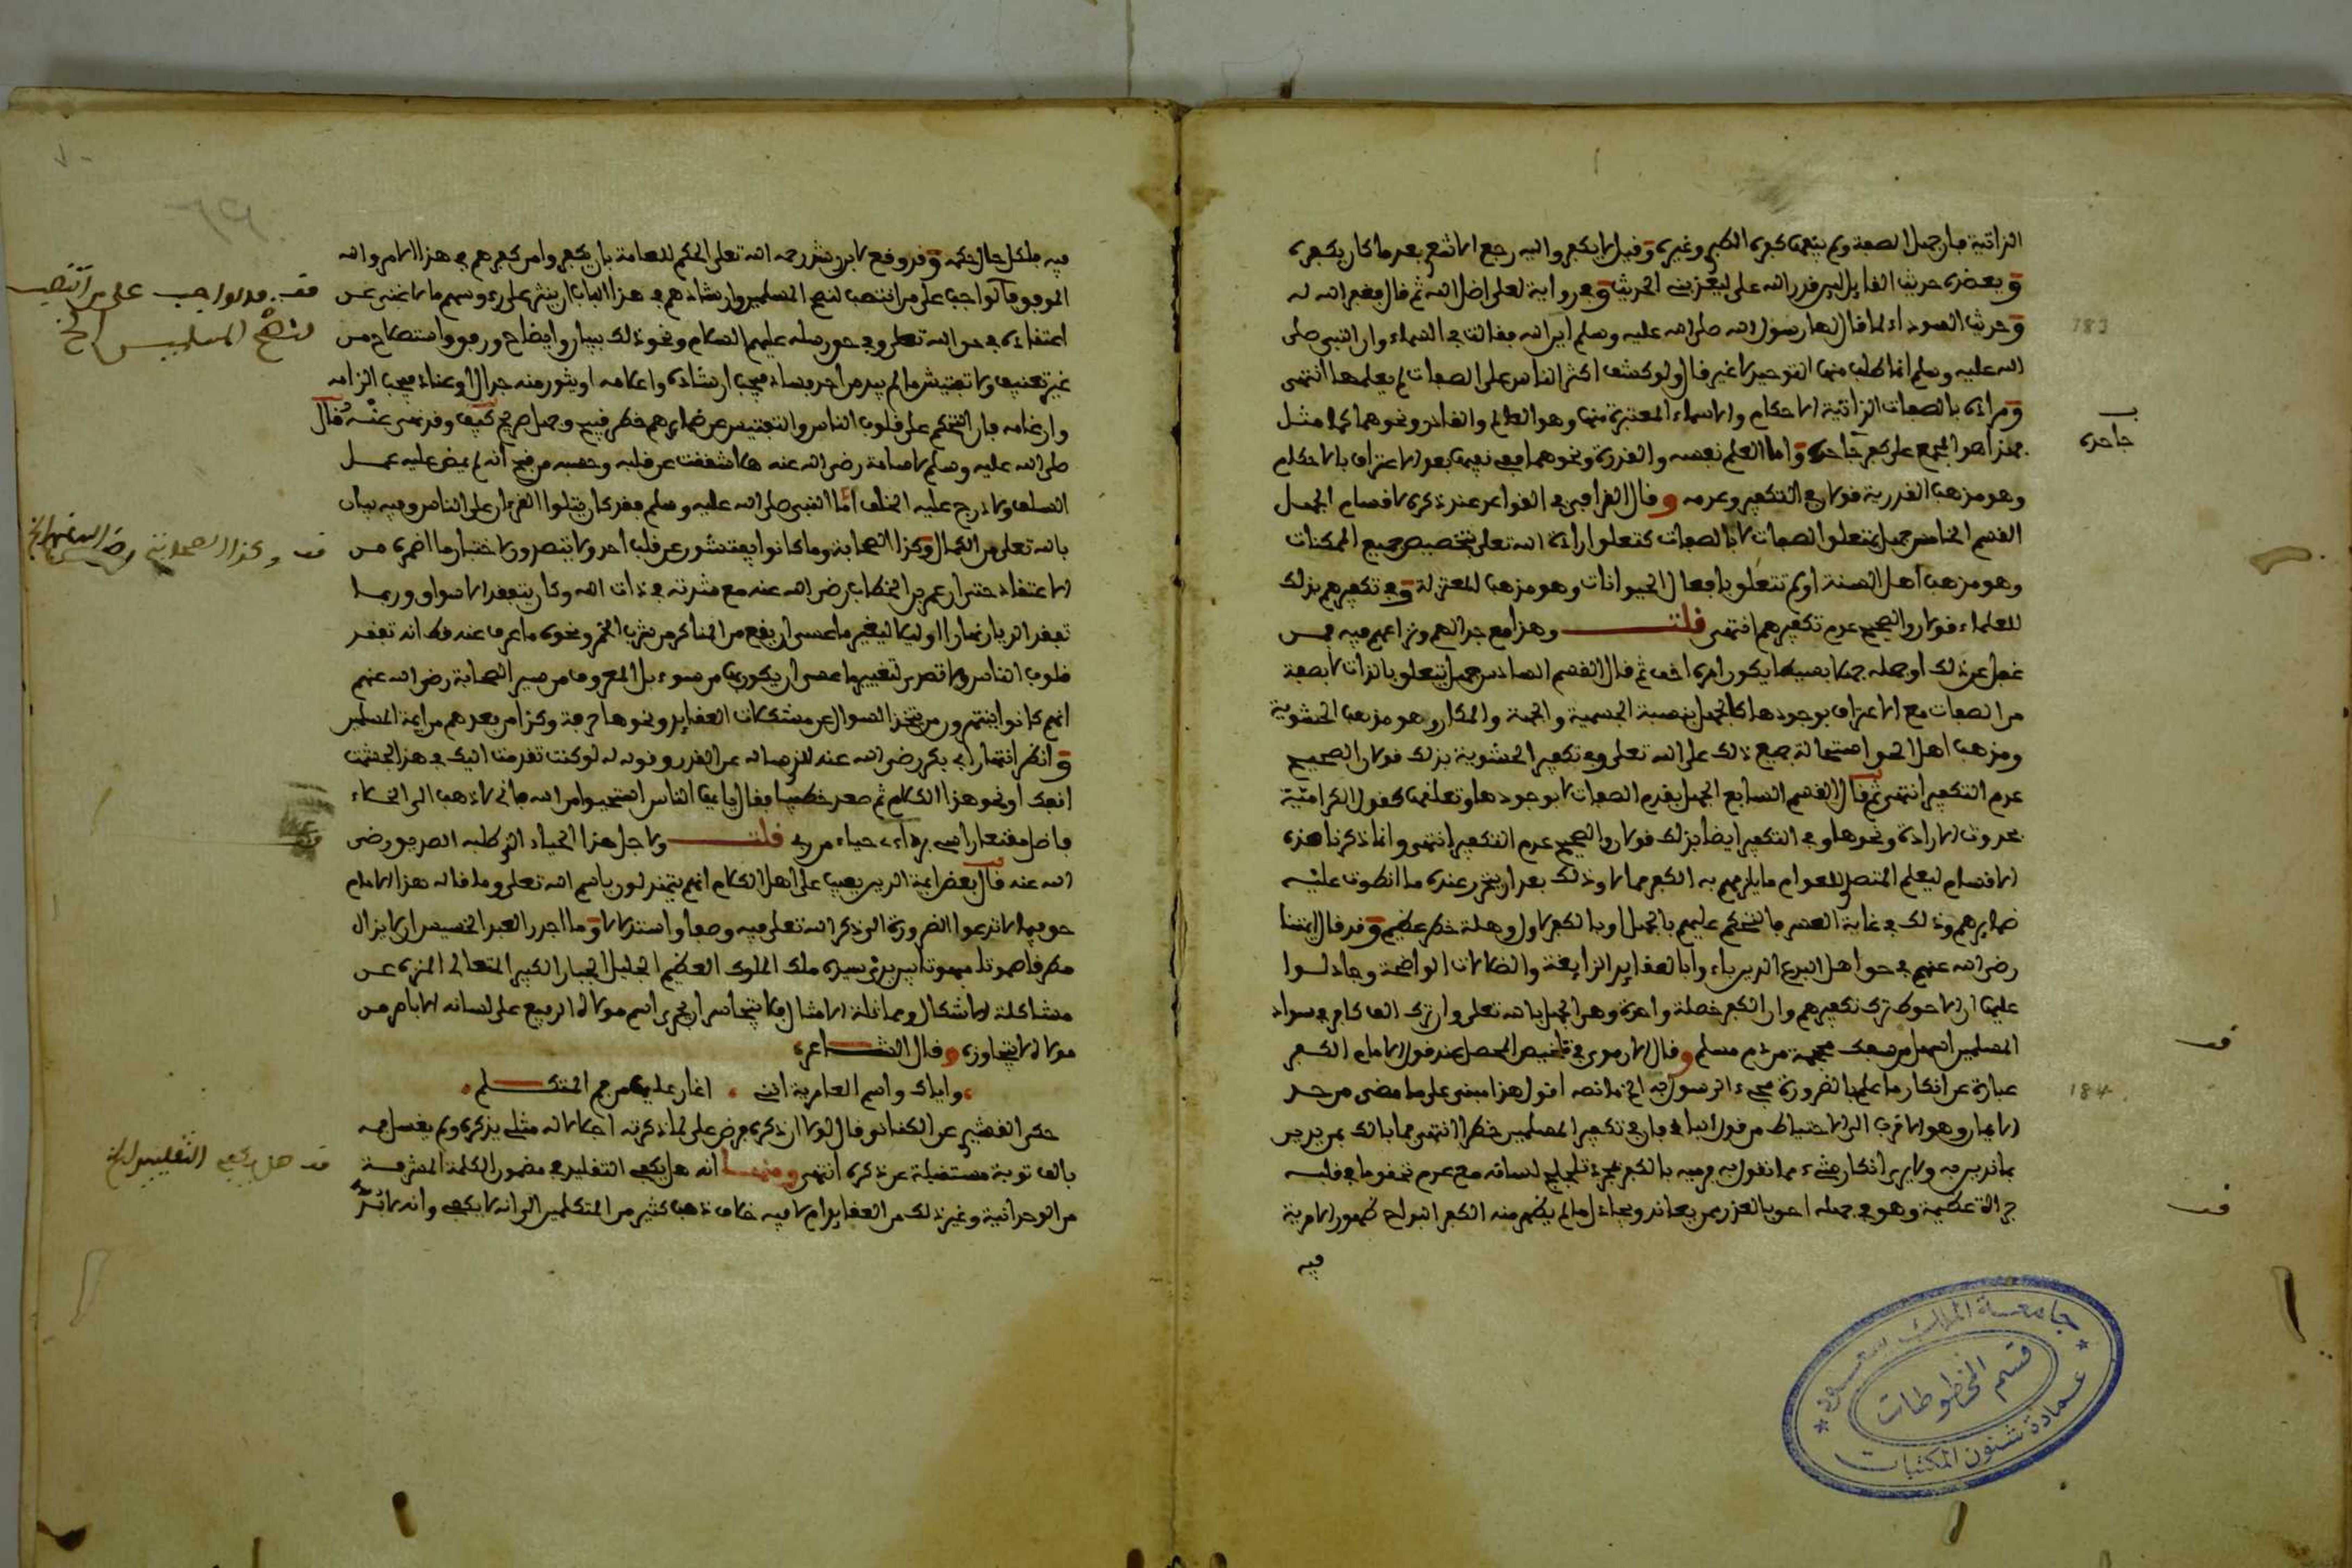 الذاتية فإن جهل الصفة ولم ينفها كفره الطبري وغيره وقيل لا يكفر وإليه رجع الأشعري بعد ما كان يكفره
ويعضده حديث القائل لئن قدر الله علي ليعذبني الحديث وفي رواية لعلي أضل الله ثم قال فغفر الله له
وحديث السوداء لما قال لها رسول الله صلى الله عليه وسلم أين الله فقالت في السماء وإن النبي صلى
الله عليه وسلم إنما طلب منها التوحيد لا غير قال ولو كشف أكثر الناس على الصفات لم يعلمها انتهى
ومراده بالصفات الذاتية الأحكام والأسماء المعتبرة منها وهو العالم والقادر ونحوهما كما مثل
فهذا هو المجمع على كفر جاحده وأما العلم نفسه والقدرة ونحوهما ففي نفيها بعد الاعتراف بالأحكام
وهو مذهب القدرية قولان في التكفير وعدمه وقال القرافي في القواعد عند ذكره لأقسام الجهل
القسم الخامس جهل بتعلق الصفات لا بالصفات كتعلق إرادة الله تعلى بتخصيص جميع الممكنات
وهو مذهب أهل السنة أو لم تتعلق بأفعال الحيوانات وهو مذهب المعتزلة وفي تكفيرهم بذلك
للعلماء قولان والصحيح عدم تكفيرهم انتهى قلت وهذا مع جدالهم ونزاعهم فيه فمن
غفل عن ذلك أو جهله جهلا بسيطا يكون أمره أخف ثم قال القسم السادس جهل يتعلق بالذات لا بصفة
من الصفات مع الاعتراف بوجودها كالجهل بنسبة الجسمية والجهة والمكان وهو مذهب الحشوية
ومذهب أهل الحق استحالة جميع ذلك على الله تعلى وفي تكفير الحشوية بذلك قولان الصحيح
عدم التكفير انتهى ثم قال القسم السابع الجهل بقدم الصفات لا بوجودها وتعلقها كقول الكرامية
بحدوث الإرادة ونحوها وفي التكفير أيضا بذلك قولان والصحيح عدم التكفير انتهى وإنما ذكرنا هذه
الأقسام ليعلم المتصل للعوام ما يلزمهم به الكفر مما لا وذلك بعد أن يتحرر عنده ما انطوت عليه
ضمايرهم وذلك في غاية العسر فالتحكم عليهم بالجهل أو بالكفر لأول وهلة خطر عظيم وقد قال أئمتنا
رضي الله عنهم في حق أهل البدع الذين باءوا بالعقايد الزايغة والضلالات الواضحة وجادلوا
عليها أن الأحوط ترك تكفيرهم وأن الكفر خصلة واحدة وهو الجهل بالله تعلى وأن ترك ألف كافر في سواد
المسلمين أسهل من سفك محجمة من دم مسلم وقال الأرموي في تلخيص المحصل عند قول الإمام الكفر
عبارة عن إنكار ما علم بالضرورة مجيء الرسول به الخ ما نصه أقول هذا مبني على ما مضى من حد
الإيمان وهو الأقرب إلى الاحتياط من قول الباقي فإن في تكفير المسلمين خطرا انتهى فما بالك بمن يدين
بما ندين به ولا يريد إنكار شيء مما نقول به فرميه بالكفر بمجرد تلجلج لسانه مع عدم تحقق ما في قلبه
جرأة عظيمة وهو في جهله أحق بالعذر ممن يعاند ويجادل ما لم يظهر منه الكفر البواح ظهورا لا مرية
فيه
جاحده
183
184
قف
قف
جامعة الملك سعود
قسم المخطوطات
عمادة شئون المكتبات
فيه فلكل حال حكمه وقد وقع لابن رشد رحمه الله تعلى الحكم للعامة بأن يكفي وأمر كفرهم في هذا الأمر والله
الموفق فالواجب على من انتصب لنصح المسلمين وإرشادهم في هذا الباب أن ينثر على رءوسهم ما لا غنى عن
اعتقاده في حق الله تعلى وفي حق رسله عليهم السلام ونحو ذلك ببيان وإيضاح ورفق واستصلاح من
غير تعنيف ولا تفتيش ما لم يبد من أحد فساد فيجب إرشاده وإعلامه أو يثور منه جدال أو عناد فيجب إلزامه
وإرغامه فإن التحكم على قلوب الناس والتفتيش عن ضمايرهم خطر قبيح وجهل صريح كيف وقد نهى عنه وقال
صلى الله عليه وسلم لأسامة رضي الله عنه هلا شققت عن قلبه وحسبه من قبح أنه لم يمض عليه عمل
السلف ولا درج عليه الخلف أما النبي صلى الله عليه وسلم فقد كان يتلوا القرءان على الناس وفيه بيان
بالله تعلى من الكمال وكذا الصحابة وما كانوا يفتشون عن قلب أحد ولا يتصدون لاختبار ما أضمره من
الاعتقاد حتى إن عمر بن الخطاب رضي الله عنه مع شدته في ذات الله وكان يتفقد الأسواق وربما
تفقد الديار نهارا أو ليلا ليغير ما عسى أن يقع من المناكر من شرب الخمر ونحوه ما عرف عنه قط أنه تفقد
قلوب الناس ولا تصدى لتغيير ما عسى أن يكون بها من سوء بل المعروف من سير الصحابة رضي الله عنهم
أنهم كانوا ينتهرون من يتخذ السؤال عن مشكلات العقايد ونحوها حرفة وكذا من بعدهم من أيمة المسلمين
وانظر انتهار أبي بكر رضي الله عنه للذي سأله عن القدر وقوله له لو كنت تقدمت إليك في هذا لجدعت
أنفك أو نحو هذا الكلام ثم صعد خطيبا فقال يأيها الناس استحيوا من الله فإني لأذهب إلى الخلاء
فأظل مقنعا رأسي برداءي حياء من ربي قلت ولأجل هذا الحياء الذي طلبه الصديق رضي
الله عنه قال بعض أيمة الدين يعيب على أهل الكلام أنهم يتمندلون باسم الله تعلى وما قاله هذا الإمام
حق فيما لا تدعوا الضرورة إلى ذكر الله تعلى فيه وصفا واستدلالا وما أجدر العبد الخسيس أن لا يزال
مطرقا صموتا مبهوتا بين يدي سيده ملك الملوك العظيم الجليل الجبار الكبير المتعالي المنزه عن
مشاكلة الأشكال ومماثلة الأمثال فلا يتجاسر أن يجري اسم مولاه الرفيع على لسانه إلا بأمر من
مولاه لا يتجاوزه وقال الشاعر
وإياك واسم العامرية إنني أغار عليها من فم المتكلم
حكى القشيري عن الكتاني وقال لولا أن ذكره فرض علي لما ذكرته إجلالا له مثلي يذكره ولم يغسل فمه
بألف توبة مستقبلة عن ذكره انتهى ومنها أنه هل يكفي التقليد في مضمون الكلمة المشرفة
من الوحدانية وغير ذلك من العقايد أم لا فيه خلاف ذهب كثير من المتكلمين إلى أنه لا يكفي وأنه لا بد
قف فالواجب على من انتصب
لنصح المسلمين الخ
قف وكذا الصحابة رضي الله عنهم الخ
قف
قف هل يكفي التقليد الخ